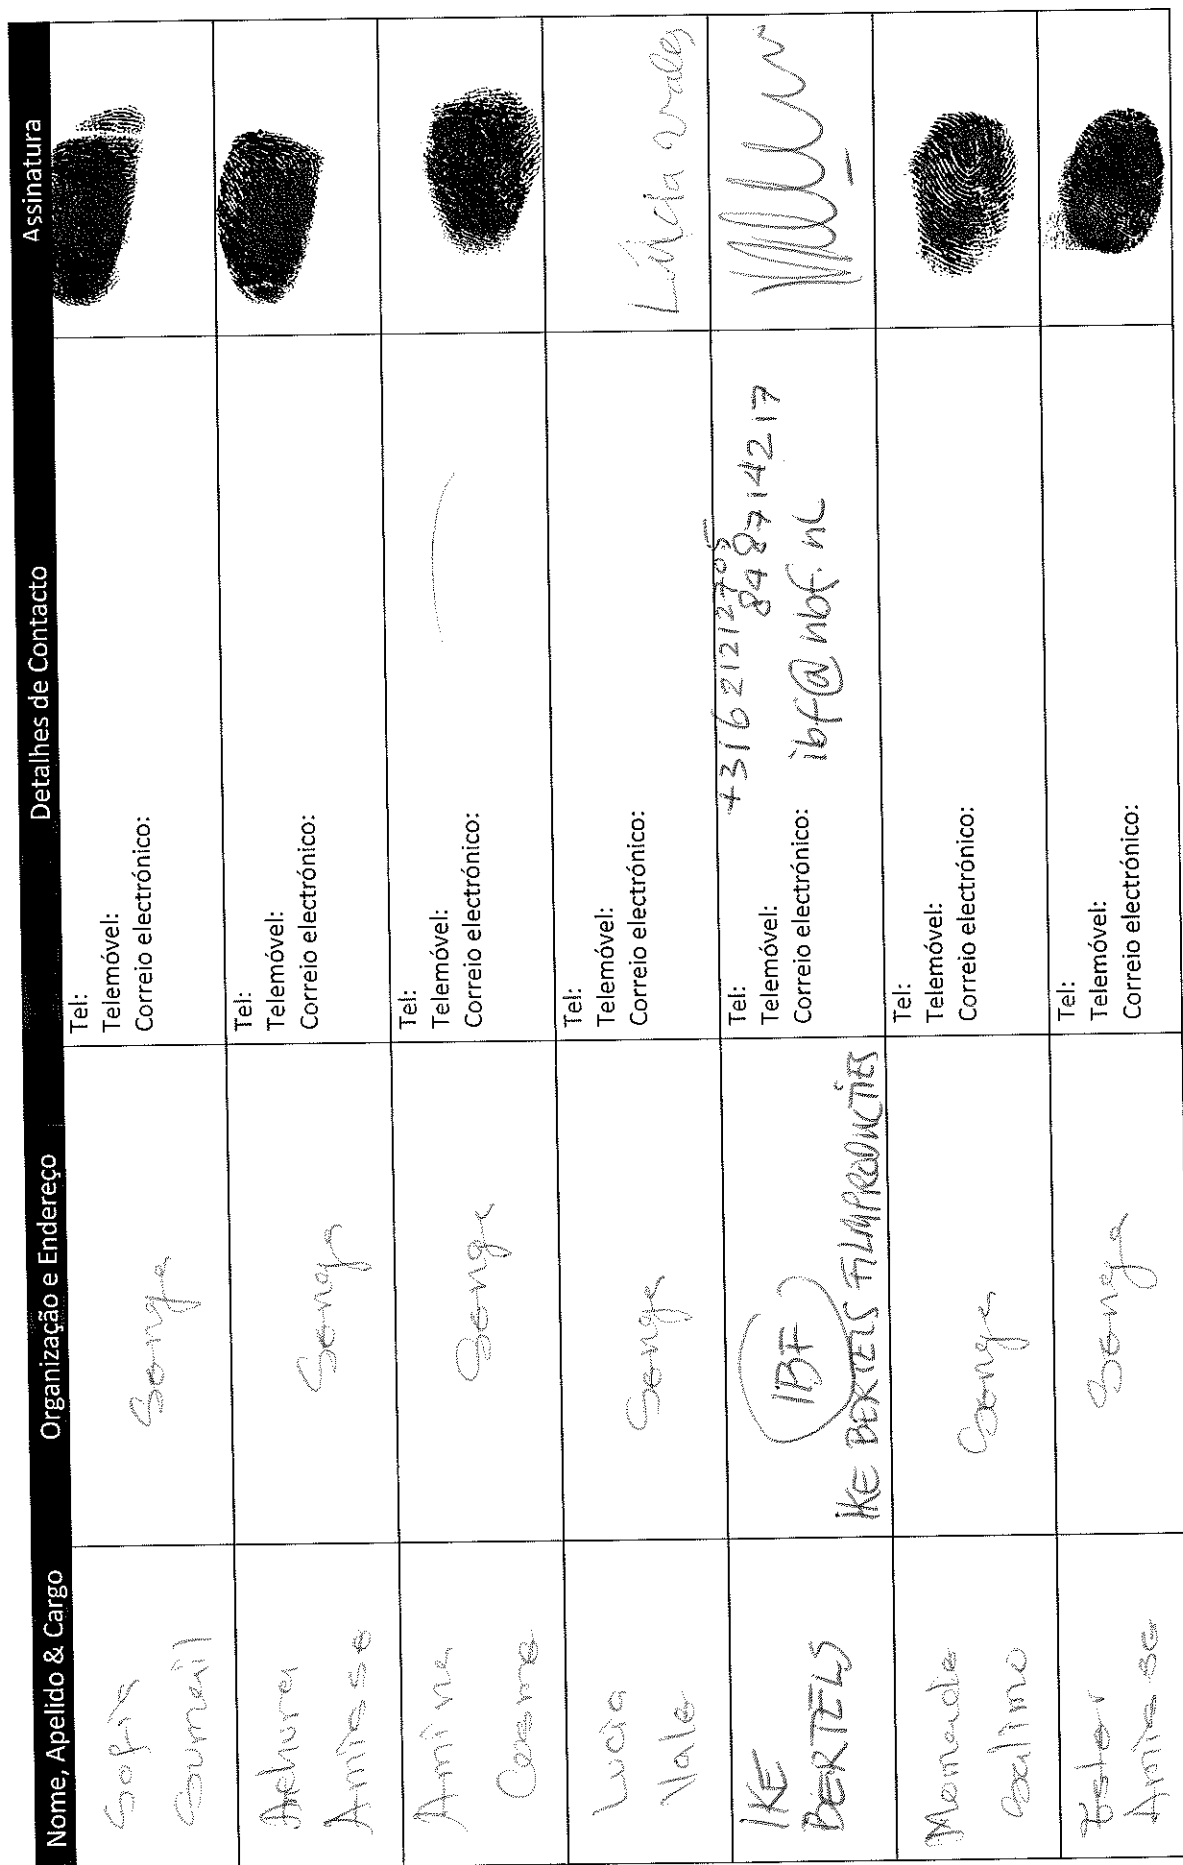 Nome, Apelido & Cargo
Organização e Endereço
Detalhes de Contacto
Assinatura
Sofia
Sumail
Senga
Tel:
Telemóvel:
Correio electrónico:
Achura
Amisse
Senga
Tel:
Telemóvel:
Correio electrónico:
Amina
Senga
Tel:
Telemóvel:
Correio electrónico:
Lucia
Vale
Senga
Tel:
Telemóvel:
Correio electrónico:
IKE
BERTELS
IBF
IKE BERTELS FILMPRODUCTIES
Tel: +31621212705
Telemóvel: 848714217
Correio electrónico: ibf@nbf.nl
Momade
Salimo
Senga
Tel:
Telemóvel:
Correio electrónico:
Ester
Amisse
Senga
Tel:
Telemóvel:
Correio electrónico: